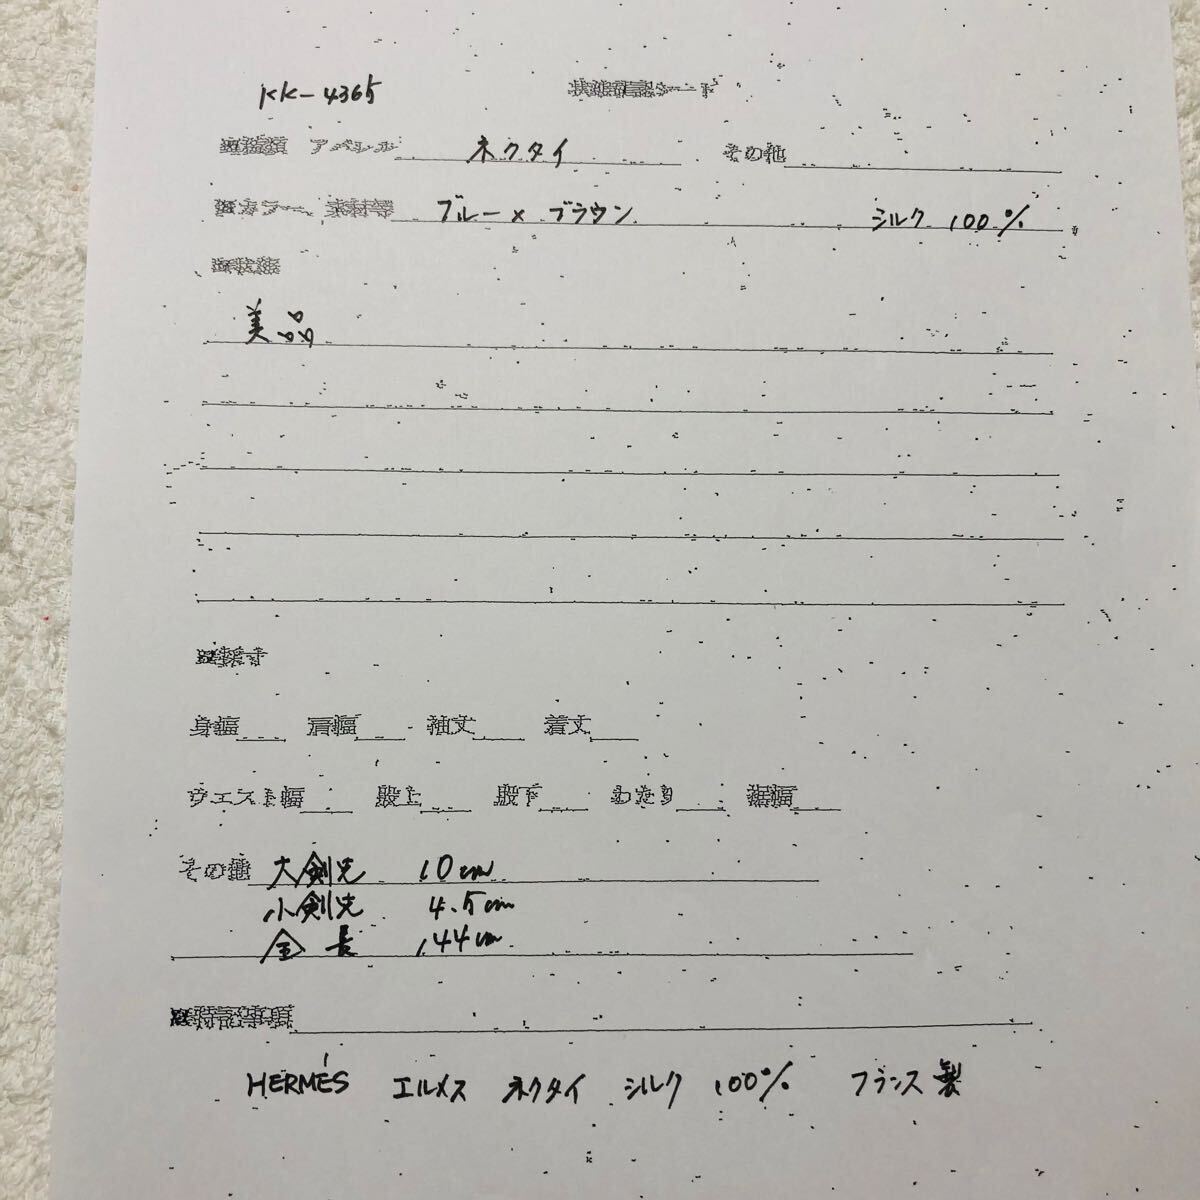 KK-4365 状態確認シート
種類 アパレル ネクタイ その他
カラー、素材等 ブルー×ブラウン シルク 100%
状態
美品
採寸
身幅 肩幅 袖丈 着丈
ウエスト幅 股上 股下 わたり 裾幅
その他 大剣先 10cm
小剣先 4.5cm
全長 144cm
特記事項
HERMÉS エルメス ネクタイ シルク 100% フランス製